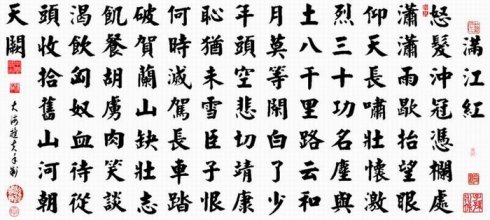 滿江紅
怒髮沖冠憑欄處
瀟瀟雨歇抬望眼
仰天長嘯壯懷激
烈三十功名塵與
土八千里路云和
月莫等閑白了少
年頭空悲切靖康
恥猶未雪臣子恨
何時滅駕長車踏
破賀蘭山缺壯志
飢餐胡虜肉笑談
渴飲匈奴血待從
頭收拾舊山河朝
天闕